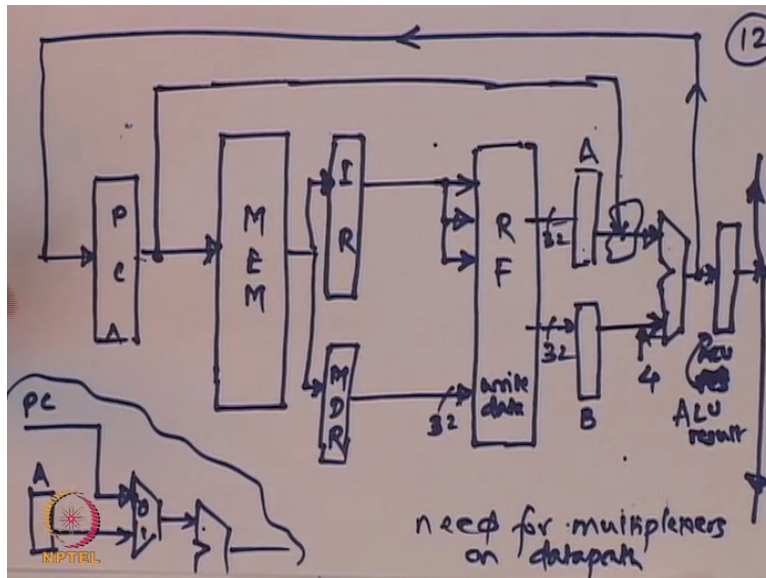 12
PCA
MEM
IR
MDR
RF
write data
32
32
32
A
B
4
ALU
result
PC
A
0
1
need for multiplexers
on datapath
NPTEL